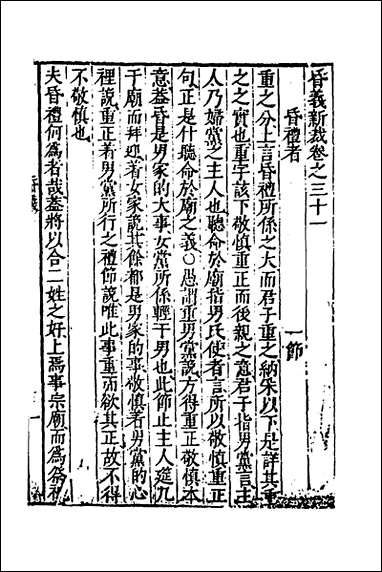 昏義新裁卷之三十一
昏禮者　一節
重之分上言昏禮所係之大而君子重之納采以下是詳其重
之之實也重字該下敬慎重正而後親之意君子指男黨言主
人乃婦黨之主人也聽命於廟指男氏使者言所以敬慎重正
句正是什聽命於廟之義〇愚謂重男黨說方得重正敬慎本
意蓋昏是男家的大事女黨所係輕于男也此節止主人筵几
于廟而拜迎著女家說其餘都是男家的事敬慎著男黨的心
裡說重正著男黨所行之禮節說唯此事重而欲其正故不得
不敬慎也
夫昏禮何為者哉蓋將以合二姓之好上焉事宗廟而為祭祀
昏義
一